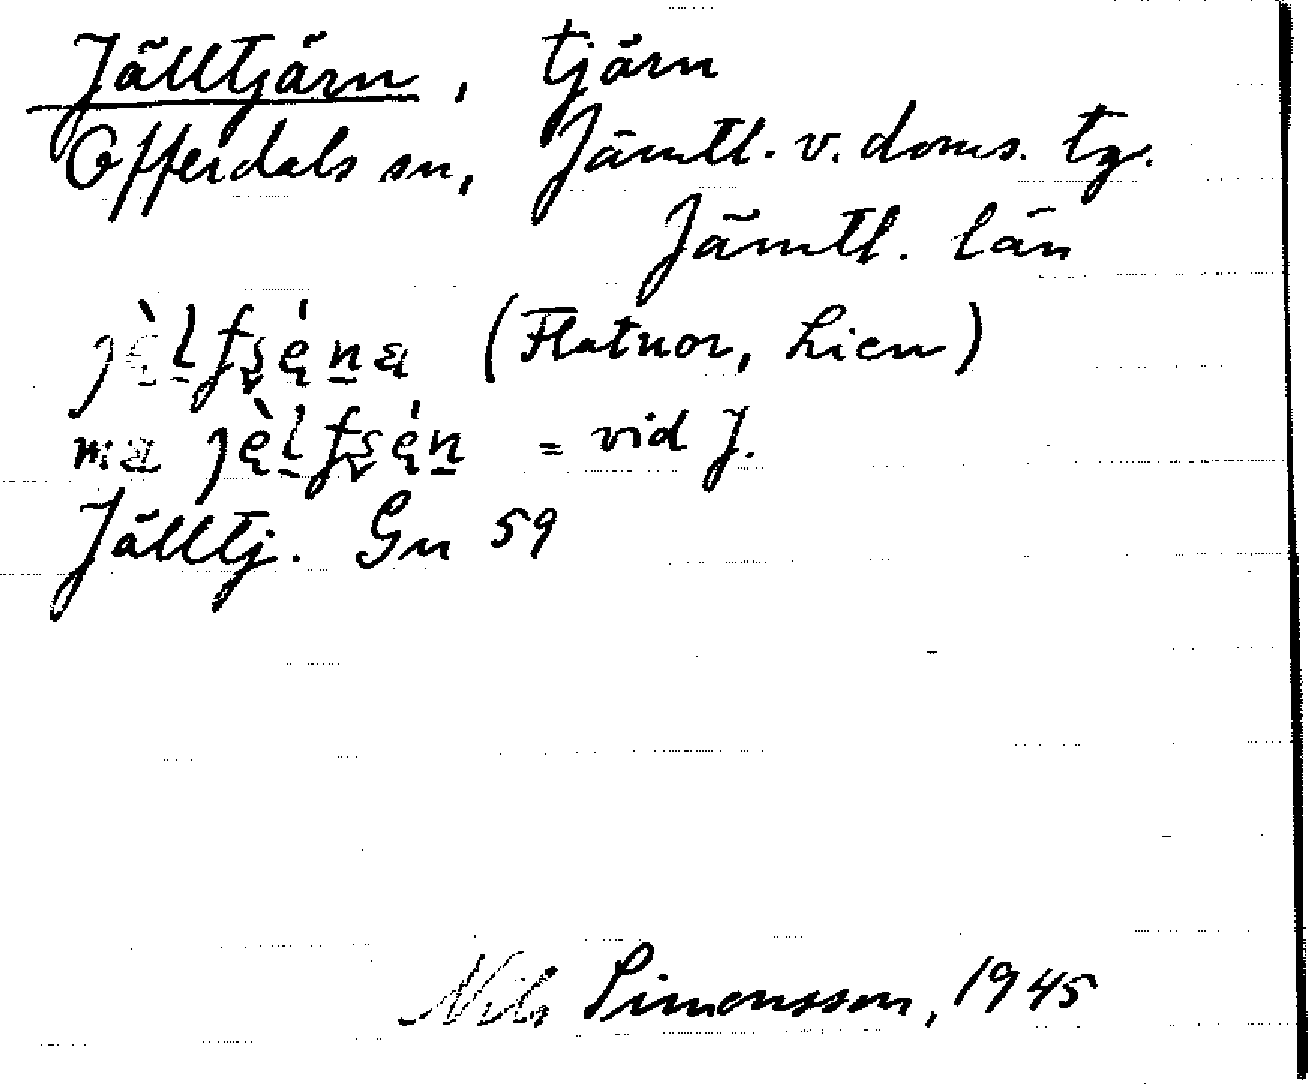 Jälltjärn, tjärn
Offerdals sn, Jämtl. v. doms. tg.
Jämtl. län
(Flatnor, Lien)
= vid J.
Jälltj. Gn 59
Nils Simonsson, 1945